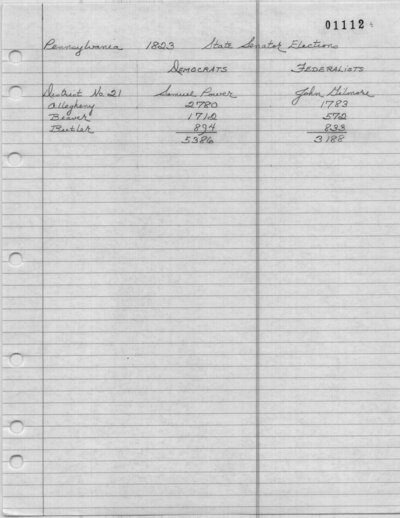 01112
Pennsylvania 1823 State Senator Elections
DEMOCRATS FEDERALISTS
District No. 21 Samuel Power John Gilmore
Allegheny 2780 1783
Beaver 1712 572
Butler 894 833
5386 3188